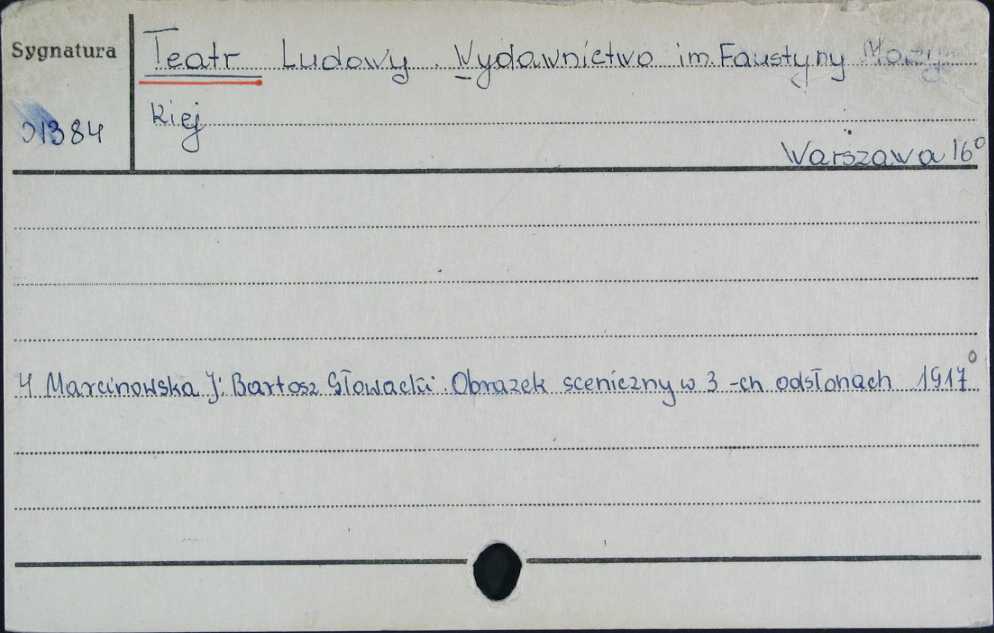 Sygnatura
Teatr Ludowy. Wydawnictwo im. Faustyny
kiej
1384
Warszawa 16°
4 Marcinowska J: Bartosz Głowacki. Obrazek sceniczny w 3-ch odsłonach 1917°